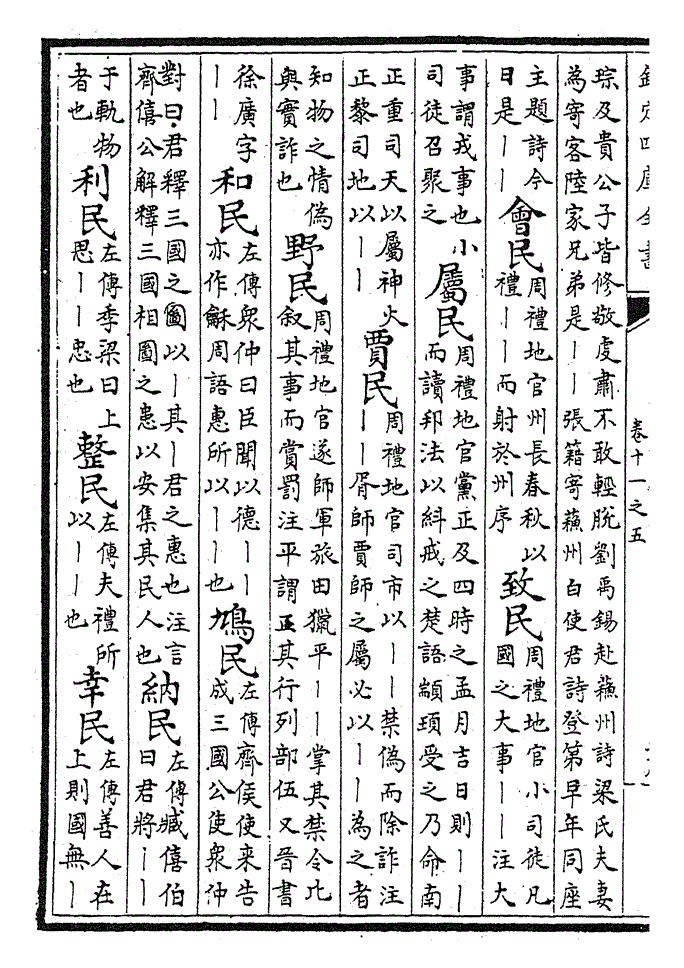 欽定四庫全書
卷十一之五
琮及貴公子皆修敬虔肅不敢輕脫劉禹錫赴蘇州詩梁氏夫妻
為寄客陸家兄弟是丨丨張籍寄蘇州白使君詩登第早年同座
主題詩今
日是丨丨
會民
周禮地官州長春秋以
禮丨丨而射於州序
致民
周禮地官小司徒凡
國之大事丨丨注大
事謂戎事也小
司徒召聚之
屬民
周禮地官黨正及四時之孟月吉日則丨丨
而讀邦法以糾戒之楚語顓頊受之乃命南
正重司天以屬神火
正黎司地以丨丨
賈民
周禮地官司市以丨丨禁偽而除詐注
丨丨胥師賈師之屬必以丨丨為之者
知物之情偽
與實詐也
野民
周禮地官遂師軍旅田獵平丨丨掌其禁令比
敘其事而賞罰注平謂正其行列部伍又晉書
徐廣字
丨丨
和民
左傳衆仲曰臣聞以德丨丨
亦作龢周語惠所以丨丨也
鳩民
左傳齊侯使來告
成三國公使衆仲
對曰君釋三國之圖以丨其丨君之惠也注言
齊僖公解釋三國相圖之患以安集其民人也
納民
左傳臧僖伯
曰君將丨丨
于軌物
者也
利民
左傳季梁曰上
思丨丨忠也
整民
左傳夫禮所
以丨丨也
幸民
左傳善人在
上則國無丨